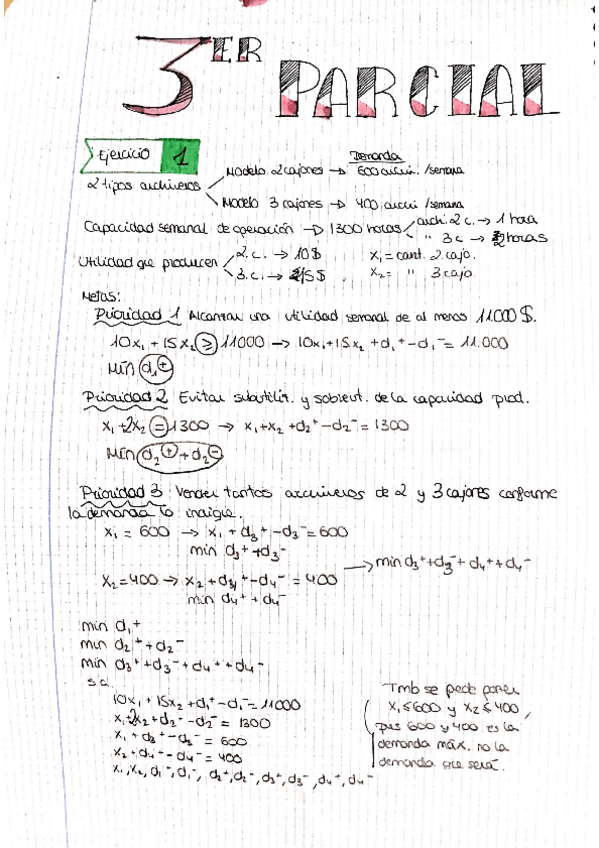 3ER PARCIAL
Ejercicio 1
2 tipos archiveros
Demanda
Modelo 2 cajones → 600 archi. /semana
Modelo 3 cajones → 400 archi /semana
Capacidad semanal de operación → 1300 horas
archi. 2 c. → 1 hora
" 3 c → 2 horas
Utilidad que producen
2. c. → 10$
3. c. → 15$
x₁ = cant. 2 cajo.
x₂ = " 3 cajo.
Metas:
Prioridad 1 Alcanzar una utilidad semanal de al menos 11.000 $.
10x₁ + 15x₂ ≥ 11000 → 10x₁+15x₂ + d₁⁺ - d₁⁻ = 11.000
Mín d₁⁺
Prioridad 2 Evitar subutiliz. y sobreut. de la capacidad prod.
x₁ + 2x₂ = 1300 → x₁+x₂ + d₂⁺ - d₂⁻ = 1300
Mín d₂⁺ + d₂⁻
Prioridad 3 Vender tantos archiveros de 2 y 3 cajones conforme
la demanda lo
x₁ = 600 → x₁ + d₃⁺ - d₃⁻ = 600
min d₃⁺ + d₃⁻
→ min d₃⁺ + d₃⁻ + d₄⁺ + d₄⁻
x₂ = 400 → x₂ + d₄⁺ - d₄⁻ = 400
min d₄⁺ + d₄⁻
min d₁⁺
min d₂⁺ + d₂⁻
min d₃⁺ + d₃⁻ + d₄⁺ + d₄⁻
s.a.
10x₁ + 15x₂ + d₁⁺ - d₁⁻ = 11000
x₁ + 2x₂ + d₂⁻ - d₂⁻ = 1300
x₁ + d₃⁺ - d₃⁻ = 600
x₂ + d₄⁺ - d₄⁻ = 400
x₁, x₂, d₁⁻, d₁⁻, d₂⁺, d₂⁻, d₃⁺, d₃⁻, d₄⁺, d₄⁻
Tmb se puede poner
x₁ ≤ 600 y x₂ ≤ 400,
pues 600 y 400 es la
demanda máx. no la
demanda que será.